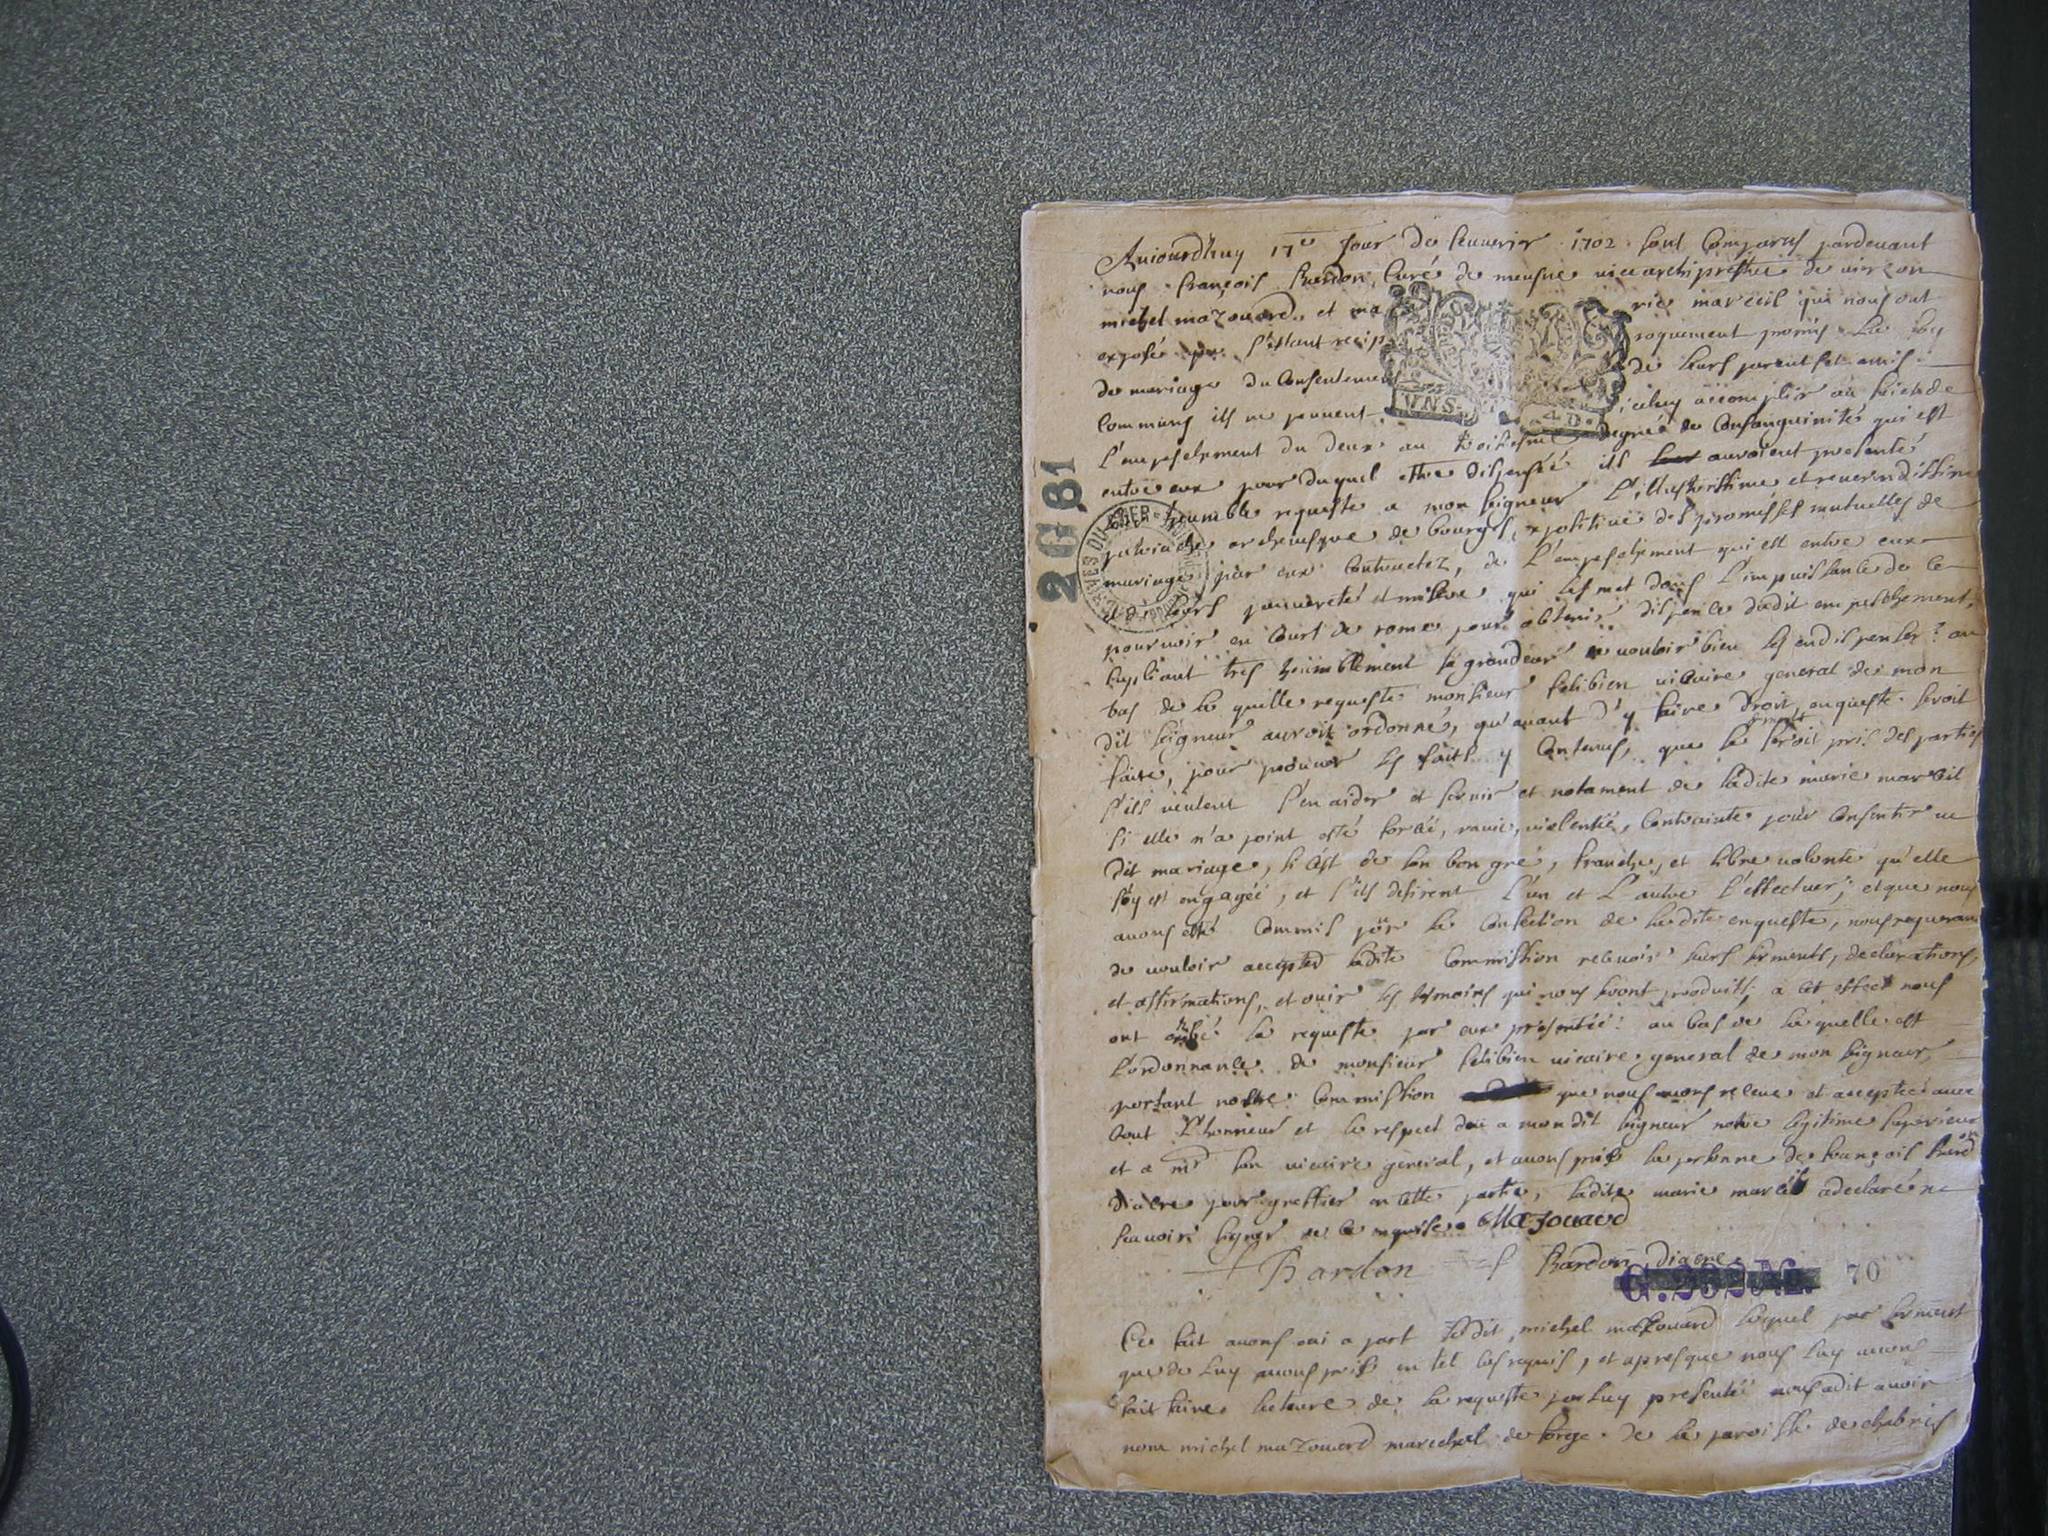 Aujourd'huy 17e Jour de feuurier 1702 sont Comparus pardeuant
nous françois hardon, Curé de meusne vicearchiprestre de vierzon
michel mazouard et ma rie marceil qui nous ont
exposé s'estant recip roquement promis la foy
de mariage du Consentement de leurs parents et amis
Communs ils ne peuuent iceluy accomplir au
l'empeschement du deux au troisiesme degré de Consanguinité qui est
entre eux pour duquel estre dispensé ils auroient presenté
humble requeste a mon seigneur l'illustrissime et reuerendissime
patriache archeuesque de bourges, expositiue des promesses mutuelles de
mariage par eux Contractez, de l'empeschement qui est entre eux
et de leurs pauureté et misere qui les met dans l'impuissance de se
pouruoir en Court de rome pour obtenir dispence dudit empeschement,
supliant tres heumblement sa grandeur de vouloir bien les en dispenser: au
bas de la quelle requeste monsieur felibien vicaire general de mon
dit seigneur auroit ordonné, qu'auant d'y faire droit, enqueste seroit
faite, pour prouuer les faits y Contenus, que le serment seroit pris des parties
s'ils veulent s'en aider et seruir et notament de ladite marie marceil
si elle n'a point esté forcé, rauie, violentée, Contrainte pour Consentir au
dit mariage, si c'est de son bon gré, franche, et libre volonté qu'elle
s'y est engagée, et s'ils desirent l'un et l'autre l'effectuer; et que nous
auons esté Commis pour la Confection de ladite enqueste, nous requerant
de vouloir accepter ladite Commission receuoir leurs serments, declarations,
et affirmations, et ouir les tesmoins qui nous seront produits, a cet effect nous
ont exhibé la requeste par eux presentée: au bas de la quelle est
l'ordonnance de monsieur felibien vicaire general de mon seigneur
portant nostre Commission que nous auons receue et acceptée auec
tout l'honneur et le respect deu a mondit seigneur notre legitime superieur
et a mr son vicaire general, et auons pris la personne de françois hardon
diacre pour greffier en cette partie, ladite marie marceil a declaré ne
scauoir signer de ce requise Mazouard
Hardon f hardon diacre
G. 232 A1. 70
Ce fait auons oui a part ledit michel mazouard lequel par serment
que de luy auons pris en tel cas requis, et apres que nous luy auons
fait faire lecture de la requeste par luy presentée nous a dit auoir
nom michel mazouard marechal de forge de la paroisse de chabris
VNS 4 D.
2 G 81
ARCHIVES DU CHER